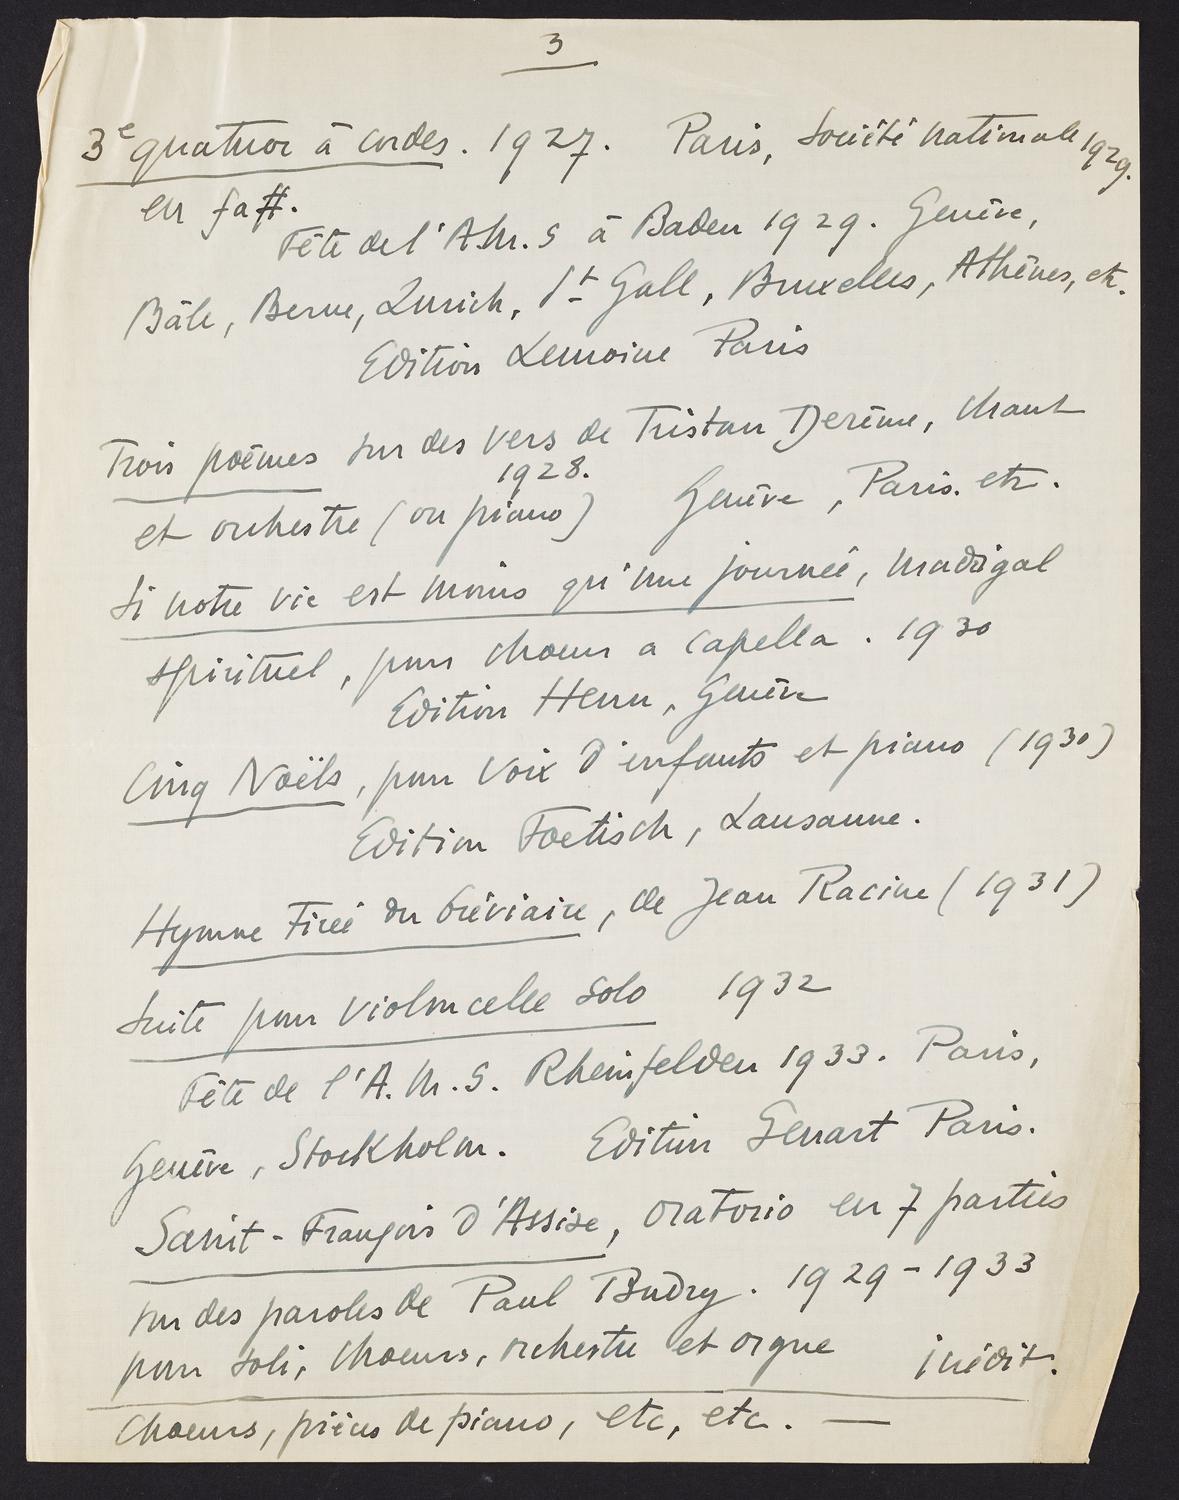 3
3e quatuor à cordes. 1927. Paris, Société nationale 1929.
en fa #.
Fête de l'A.M.S à Baden 1929. Genève,
Bâle, Berne, Zurich, St Gall, Bruxelles, Athênes, etc.
Edition Lemoine Paris
Trois poèmes sur des vers de Tristan Derème, chant
1928.
et orchestre (ou piano) Genève, Paris. etc.
Si notre vie est moins qu'une journée, madrigal
spirituel, pour choeur a capella. 1930
Edition Henn, Genève
Cinq Noëls, pour voix d'enfants et piano (1930)
Edition Foetisch, Lausanne.
Hymne tirée du bréviaire, de Jean Racine (1931)
Suite pour violoncelle solo 1932
Fête de l'A.M.S. Rheinfelden 1933. Paris,
Genève, Stockholm. Edition Senart Paris.
Saint-François d'Assise, oratorio en 7 parties
sur des paroles de Paul Budry. 1929-1933
pour soli, choeurs, orchestre et orgue inédit.
Choeurs, pièces de piano, etc, etc. —